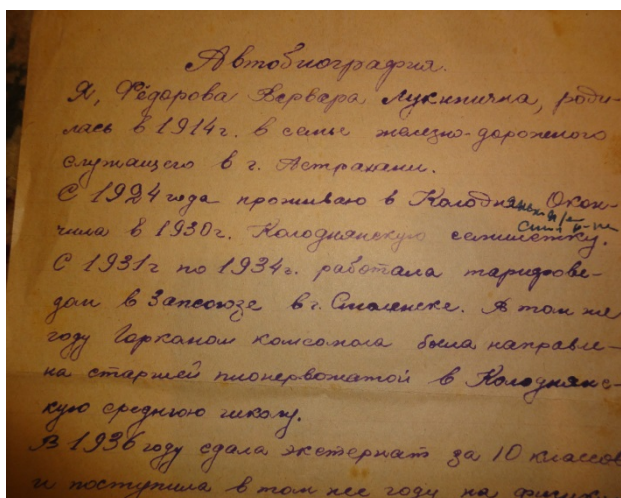 Автобиография.
Я, Фёдорова Варвара Лукинична, роди-
лась в 1914 г. в семье железно-дорожного
служащего в г. Астрахани.
С 1924 года проживаю в Колодня Окон-
чила в 1930 г. Колоднянскую семилетку.
С 1931 г по 1934 г. работала тарифове-
дом в Запсоюзе в г. Смоленске. В том же
году Горкомом комсомола была направле-
на старшей пионервожатой в Колоднянс-
кую среднюю школу.
В 1936 году сдала экстернат за 10 классов
и поступила в том же году на физик.